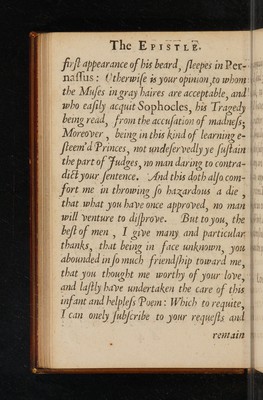 The EPISTLE.
first appearance of his beard, sleepes in Per-
nassus: Otherwise is your opinion, to whom
the Muses in gray haires are acceptable, and
who easily acquit Sophocles, his Tragedy
being read, from the accusation of madness;
Moreover, being in this kind of learning e-
steem'd Princes, not undeservedly ye sustain
the part of Judges, no man daring to contra-
dict your sentence. And this doth also com-
fort me in throwing so hazardous a die,
that what you have once approved, no man
will venture to disprove. But to you, the
best of men, I give many and particular
thanks, that being in face unknown, you
abounded in so much friendship toward me,
that you thought me worthy of your love,
and lastly have undertaken the care of this
infant and helpless Poem: Which to requite,
I can onely subscribe to your requests and
remain